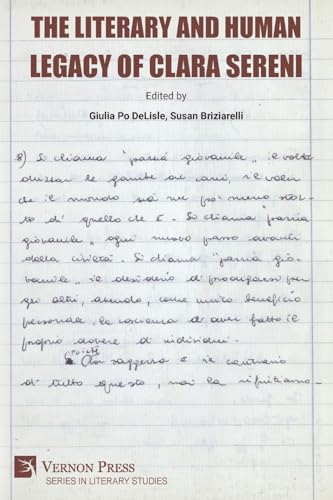 THE LITERARY AND HUMAN
LEGACY OF CLARA SERENI
Edited by
Giulia Po DeLisle, Susan Briziarelli
8) Si chiama "pazzia giovanile" il voler
le gambe ai cani, il voler
che il mondo sia un po' meno stor-
to di quello che è. Si chiama "pazzia
giovanile" ogni nuovo passo avanti
della civiltà. Si chiama "pazzia gio-
vanile" il desiderio di prodigarsi per
gli altri, avendo, come unico beneficio
personale, la coscienza di aver fatto il
proprio dovere di individui.
Poiché
la saggezza è il contrario
di tutto questo, noi la rifiutiamo.
VERNON PRESS
SERIES IN LITERARY STUDIES